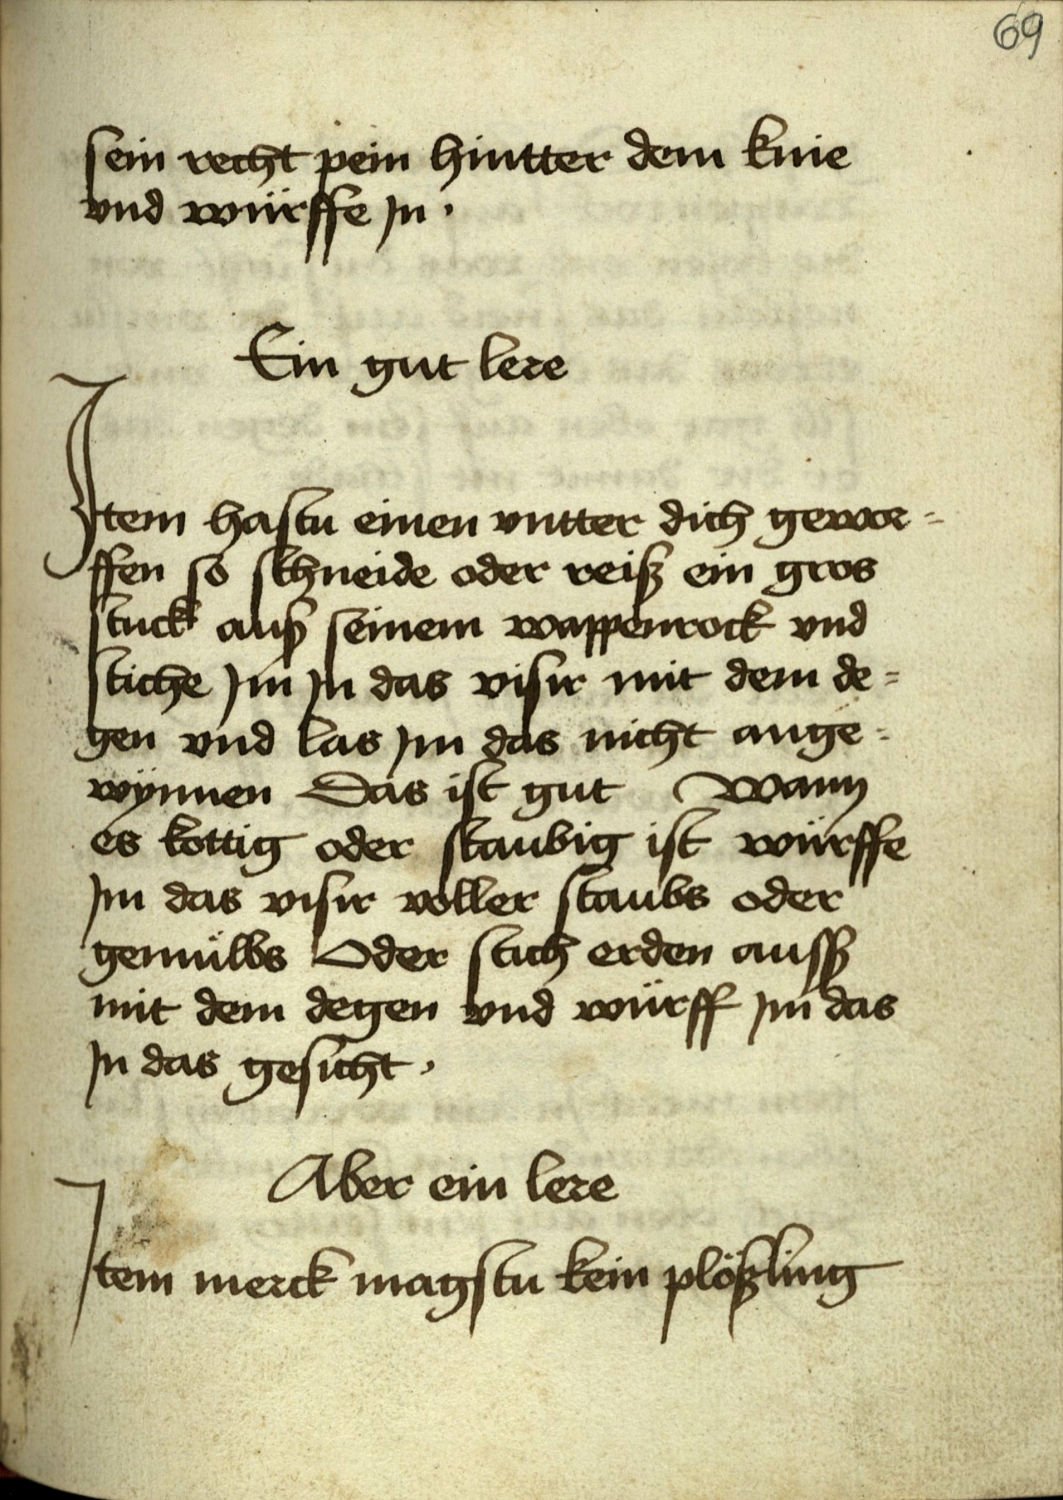 69
sein recht pein hintter dem knie
vnd würffe Jn ·
Ein gut lere
Jtem hastu einen vntter dich gewor=
ffen so schneide oder reiß ein gros
stuck auß seinem wappenrock vnd
stiche Jm Jn das visir mit dem de=
gen vnd las Jm das nicht ange=
wÿnnen Das ist gut Wann
es kottig oder staubig ist würffe
Jm das visir voller staubs oder
gemülbs Oder stich erden aussß
mit dem degen vnd würff Jm das
Jn das gesicht ·
Aber ein lere
Jtem merck magstu kein plößling